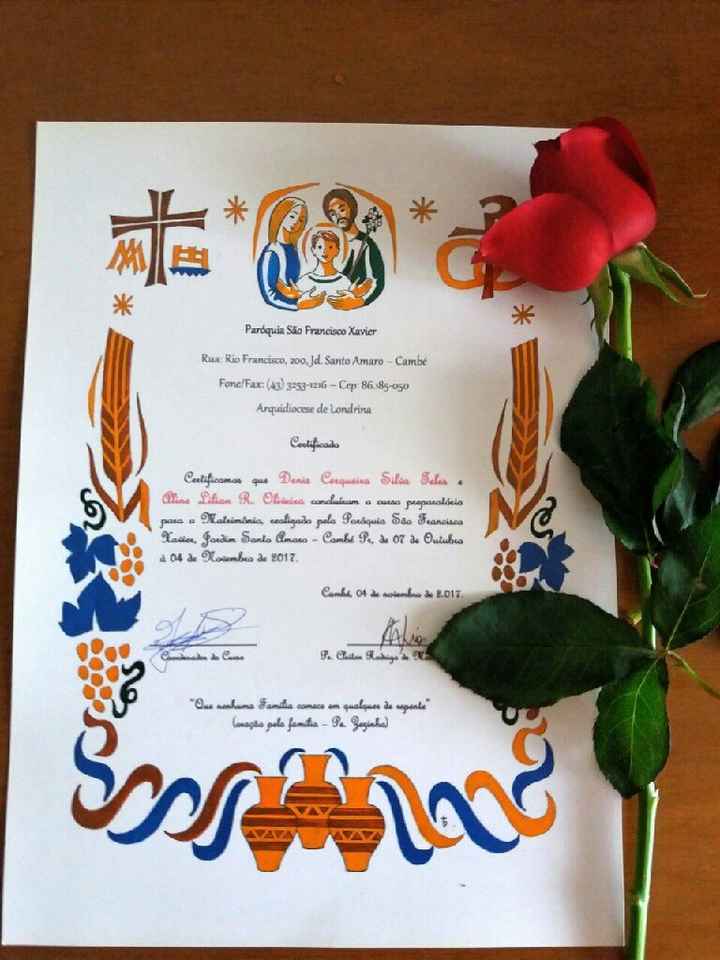 Paróquia São Francisco Xavier
Rua: Rio Francisco, 200, Jd. Santo Amaro – Cambé
Fone/Fax: (43) 3253-1216 – Cep: 86.185-050
Arquidiocese de Londrina
Certificado
Certificamos que Denis Cerqueira Silva Teles e
Aline Lilian R. Oliveira concluíram o curso preparatório
para o Matrimônio, realizado pela Paróquia São Francisco
Xavier, Jardim Santo Amaro – Cambé Pr, de 07 de Outubro
à 04 de Novembro de 2017.
Cambé, 04 de novembro de 2017.
Coordenador do Curso
Pe. Cleiton Rodrigo de
"Que nenhuma Família comece em qualquer de repente"
(oração pela família – Pe. Zezinho)